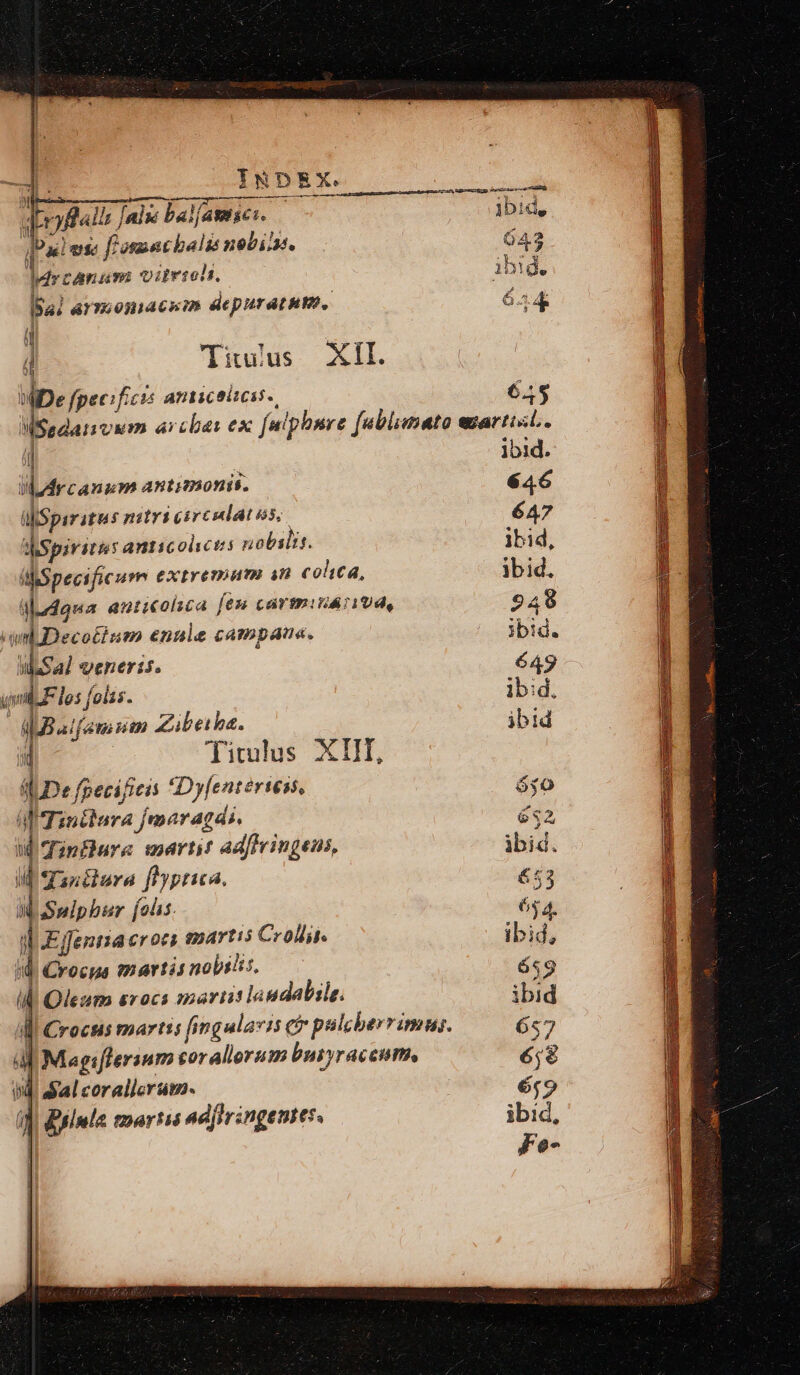 INDEX.
Cryſtalli ſalis balſamici. ibid.
Pulvis ſtomachalis nobilis. 643
Arcanum vitrioli. ibid.
Sal armoniacum depuratum. 644
Titulus XII.
De ſpecificis anticolicis. 645
Sedativum archæi ex ſulphure ſublimato martial.
ibid.
Arcanum antimonii. 646
Spiritus nitri circulatus. 647
Spiritus anticolicus nobilis. ibid.
Specificum extremum in colica, ibid.
Aqua anticolica ſeu carminativa, 948
Decoctum enulæ campanæ. ibid.
Sal veneris. 649
Flos ſolis. ibid.
Balſamum Zibethæ. ibid
Titulus XIII,
De ſpecificis Dyſentericis, 650
Tinctura ſmaragdi. 652
Tinctura martis adſtringens, ibid.
Tinctura ſtyptica. 653
Sulphur ſolis. 654.
Eſſentia croci martis Crollii. ibid,
Crocus martis nobilis. 659
Oleum croci martis laudabile. ibid
Crocus martis ſingularis & pulcherrimus. 657
Magiſterium corallorum butyraceum, 658
Sal corallorum. 659
Pilulæ martis adſtringentes. ibid,
Fo-